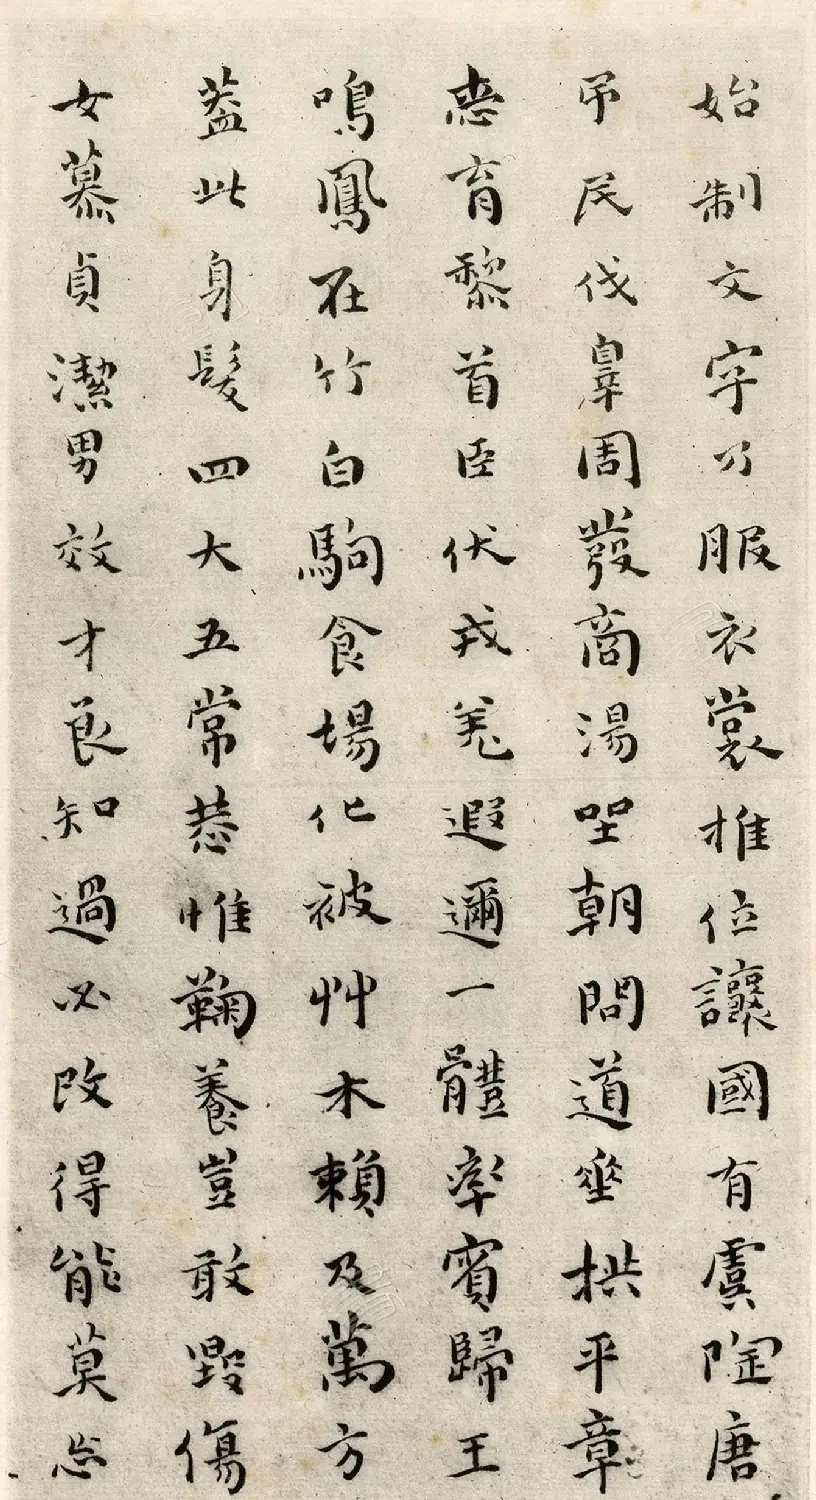 始制文字乃服衣裳推位讓國有虞陶唐
弔民伐辠周發商湯坐朝問道垂拱平章
愛育黎首臣伏戎羌遐邇一體率賓歸王
鳴鳳在竹白駒食場化被艸木賴及萬方
蓋此身髮四大五常恭惟鞠養豈敢毀傷
女慕貞潔男效才良知過必改得能莫忘